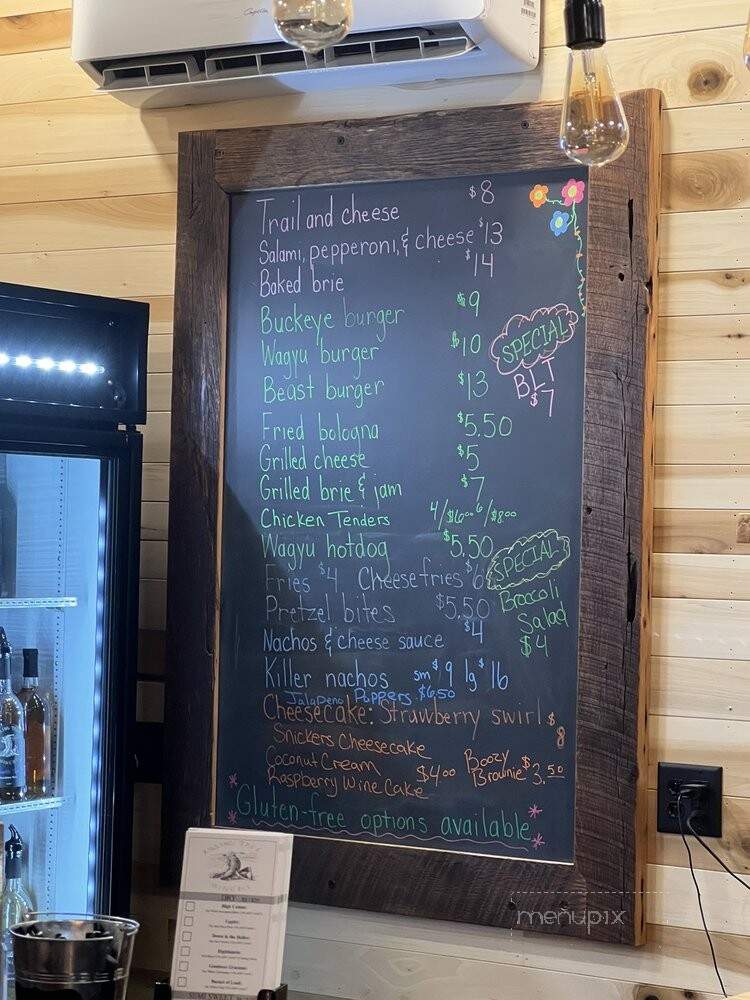 Trail and cheese $8
Salami, pepperoni, & cheese $13
Baked brie $14
Buckeye burger $9
Wagyu burger $10
Beast burger $13
SPECIAL
BLT
$7
Fried bologna $5.50
Grilled cheese $5
Grilled brie & jam $7
Chicken Tenders 4/$6.00 6/$8.00
Wagyu hotdog $5.50
Fries $4 Cheese fries $6
Pretzel bites $5.50
Nachos & cheese sauce $4
SPECIAL!
Broccoli
Salad
$4
Killer nachos sm $9 lg $16
Jalapeno Poppers $6.50
Cheesecake: Strawberry swirl $8
Snickers Cheesecake
Coconut Cream
Raspberry Wine Cake $4.00
Boozy
Brownie $3.50
* Gluten-free options available *
WINERY
SEMI SWEET
menupix